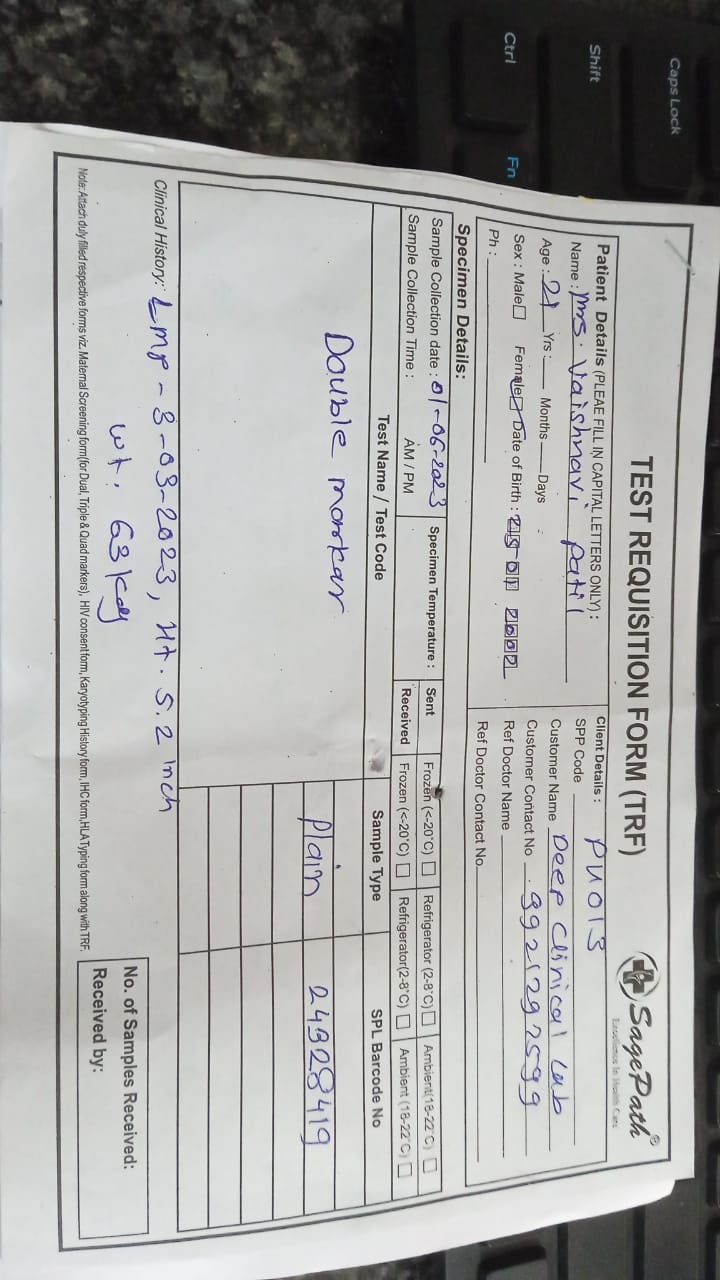 Caps Lock
Shift
Ctrl
Fn
TEST REQUISITION FORM (TRF)
SagePath®
Excellence In Health Care
Patient Details (PLEAE FILL IN CAPITAL LETTERS ONLY) :
Name : Mrs. Vaishnavi patil
Age : 21 Yrs : Months Days
Sex : Male Female Date of Birth :
Ph :
Client Details : PU013
SPP Code
Customer Name Deep Clinical Lab
Customer Contact No. 9921292599
Ref Doctor Name
Ref Doctor Contact No.
Specimen Details:
Sample Collection date : 01-06-2023
Sample Collection Time : AM / PM
Specimen Temperature :
Sent Frozen (<-20°C) Refrigerator (2-8°C) Ambient(18-22°C)
Received Frozen (<-20°C) Refrigerator(2-8°C) Ambient (18-22°C)
Test Name / Test Code Sample Type SPL Barcode No
Double marker Plain 24928419
Clinical History: LMP - 3-03-2023, Ht. 5.2 inch
wt. 63 kg
No. of Samples Received:
Received by:
Note: Attach duly filled respective forms viz. Maternal Screening form(for Dual, Triple & Quad markers), HIV consent form, Karyotyping History form, IHC form,HLA Typing form along with TRF.